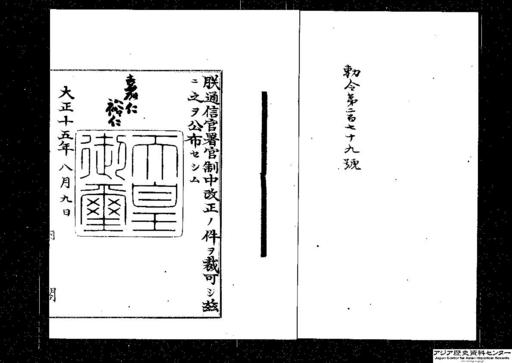 勅令第二百七十九號
朕通信官署官制中改正ノ件ヲ裁可シ茲
ニ之ヲ公布セシム
嘉仁
裕仁
天皇
御璽
大正十五年八月九日
内閣
アジア歴史資料センター
Japan Center for Asian Historical Records